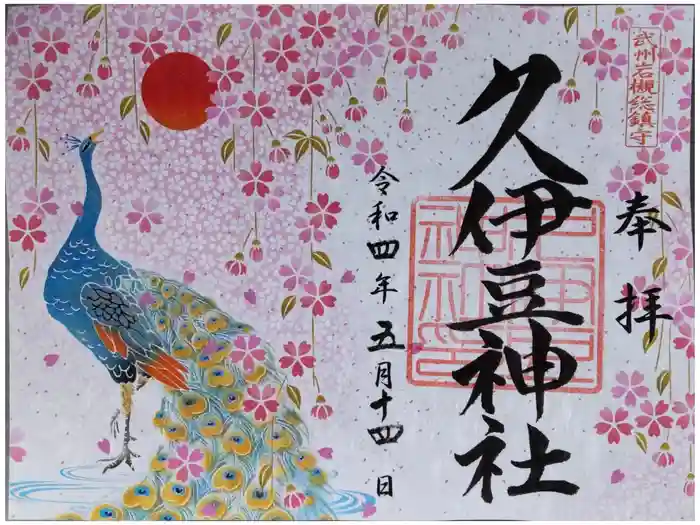 武州岩槻総鎮守
奉拝
久伊豆神社
令和四年五月十四日